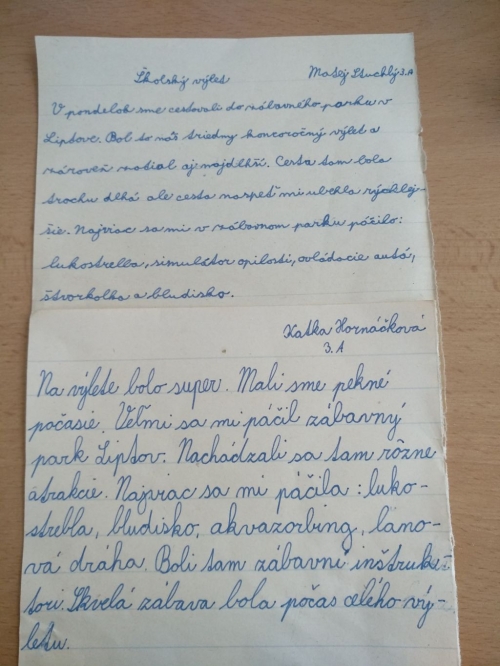 Školský výlet Matej Stuchlý 3.A
V pondelok sme cestovali do zábavného parku v
Liptove. Bol to náš triedny koncoročný výlet a
zároveň zatiaľ aj najdlhší. Cesta tam bola
trochu dlhá ale cesta naspeť mi ubehla rýchlej-
šie. Najviac sa mi v zábavnom parku páčilo:
lukostrelba, simulátor opilosti, ovládacie autá,
štvorkolka a bludisko.
Katka Hornáčková
3. A
Na výlete bolo super. Mali sme pekné
počasie. Veľmi sa mi páčil zábavný
park Liptov. Nachádzali sa tam rôzne
atrakcie. Najviac sa mi páčila: luko-
strelba, bludisko, akvazorbing, lano-
vá dráha. Boli tam zábavní inštruk-
tori. Skvelá zábava bola počas celého vý-
letu.